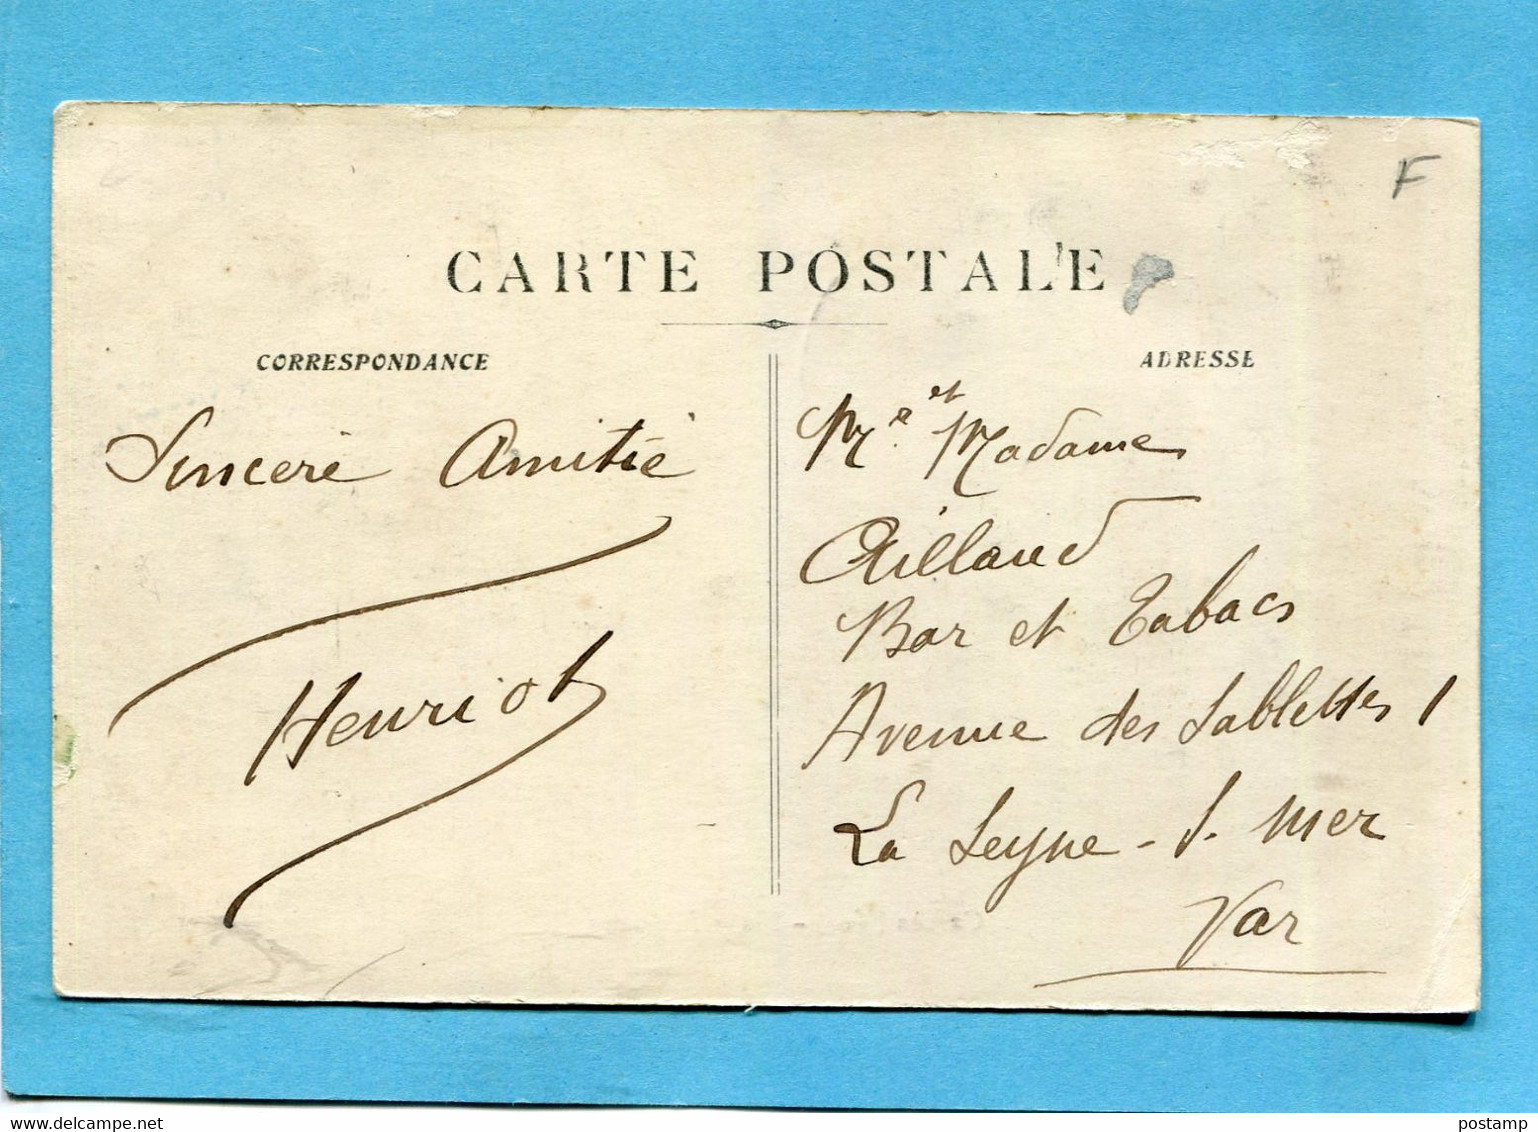 F
CARTE POSTALE
CORRESPONDANCE
ADRESSE
Sincère Amitié
Henriot
Mr et Madame
Aillaud
Bar et Tabacs
Avenue des Sablettes 1
La Seyne - s. mer
Var
www.delcampe.net
postamp